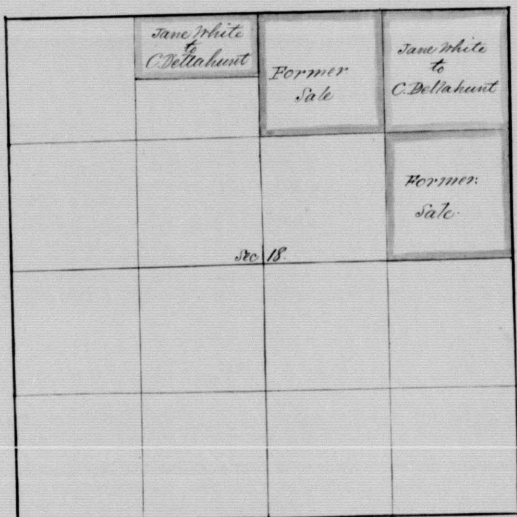 Jane White
to
C. Dellahunt
Former
Sale
Jane White
to
C. Dellahunt
Former
Sale
Sec 18.